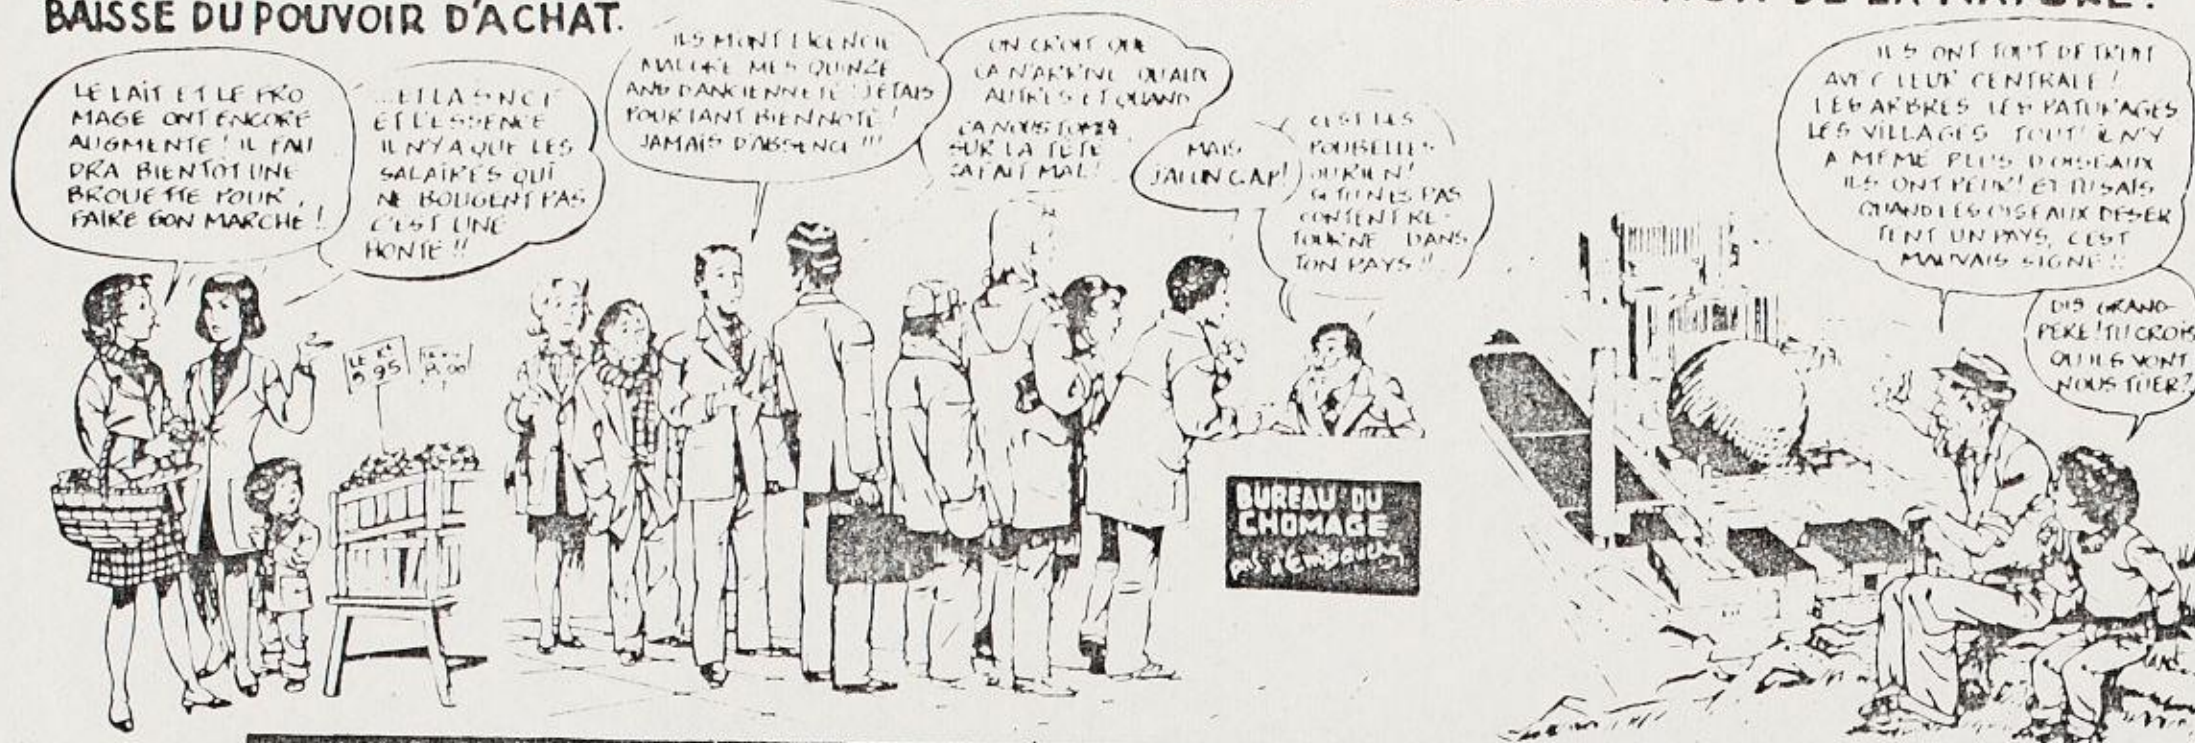 BAISSE DU POUVOIR D'ACHAT.
DE LA NATURE.
LE LAIT ET LE FRO
MAGE ONT ENCORE
AUGMENTE! IL FAU
DRA BIENTOT UNE
BROUETTE POUR
FAIRE SON MARCHE!
...ET LA SNCF
ET L'ESSENCE
IL N'Y A QUE LES
SALAIRES QUI
NE BOUGENT PAS
C'EST UNE
HONTE!!
LE KG
5 95
ILS M'ONT LICENCIE
MALGRE MES QUINZE
ANS D'ANCIENNETE! J'ETAIS
POURTANT BIEN NOTE!
JAMAIS D'ABSENCE!!!
ON CROIT QUE
CA N'ARRIVE QU'AUX
AUTRES ET QUAND
CA NOUS TOMBE
SUR LA TETE
CA FAIT MAL!
MAIS
J'AI UN CAP!
C'EST LES
POUBELLES
OU RIEN!
SI TU N'ES PAS
CONTENT RE-
TOURNE DANS
TON PAYS!!
BUREAU DU
CHOMAGE
pas d'Embauche
ILS ONT TOUT DETRUIT
AVEC LEUR CENTRALE!
LES ARBRES LES PATURAGES
LES VILLAGES TOUT! IL N'Y
A MEME PLUS D'OISEAUX
ILS ONT PEUR! ET TU SAIS
QUAND LES OISEAUX DESER
TENT UN PAYS, C'EST
MAUVAIS SIGNE!!
DIS GRAND-
PERE! TU CROIS
QU'ILS VONT
NOUS TUER?